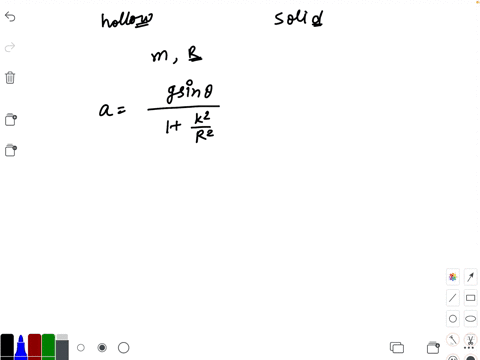 hollow solid
m, R
a = gsinθ / 1 + k²/R²